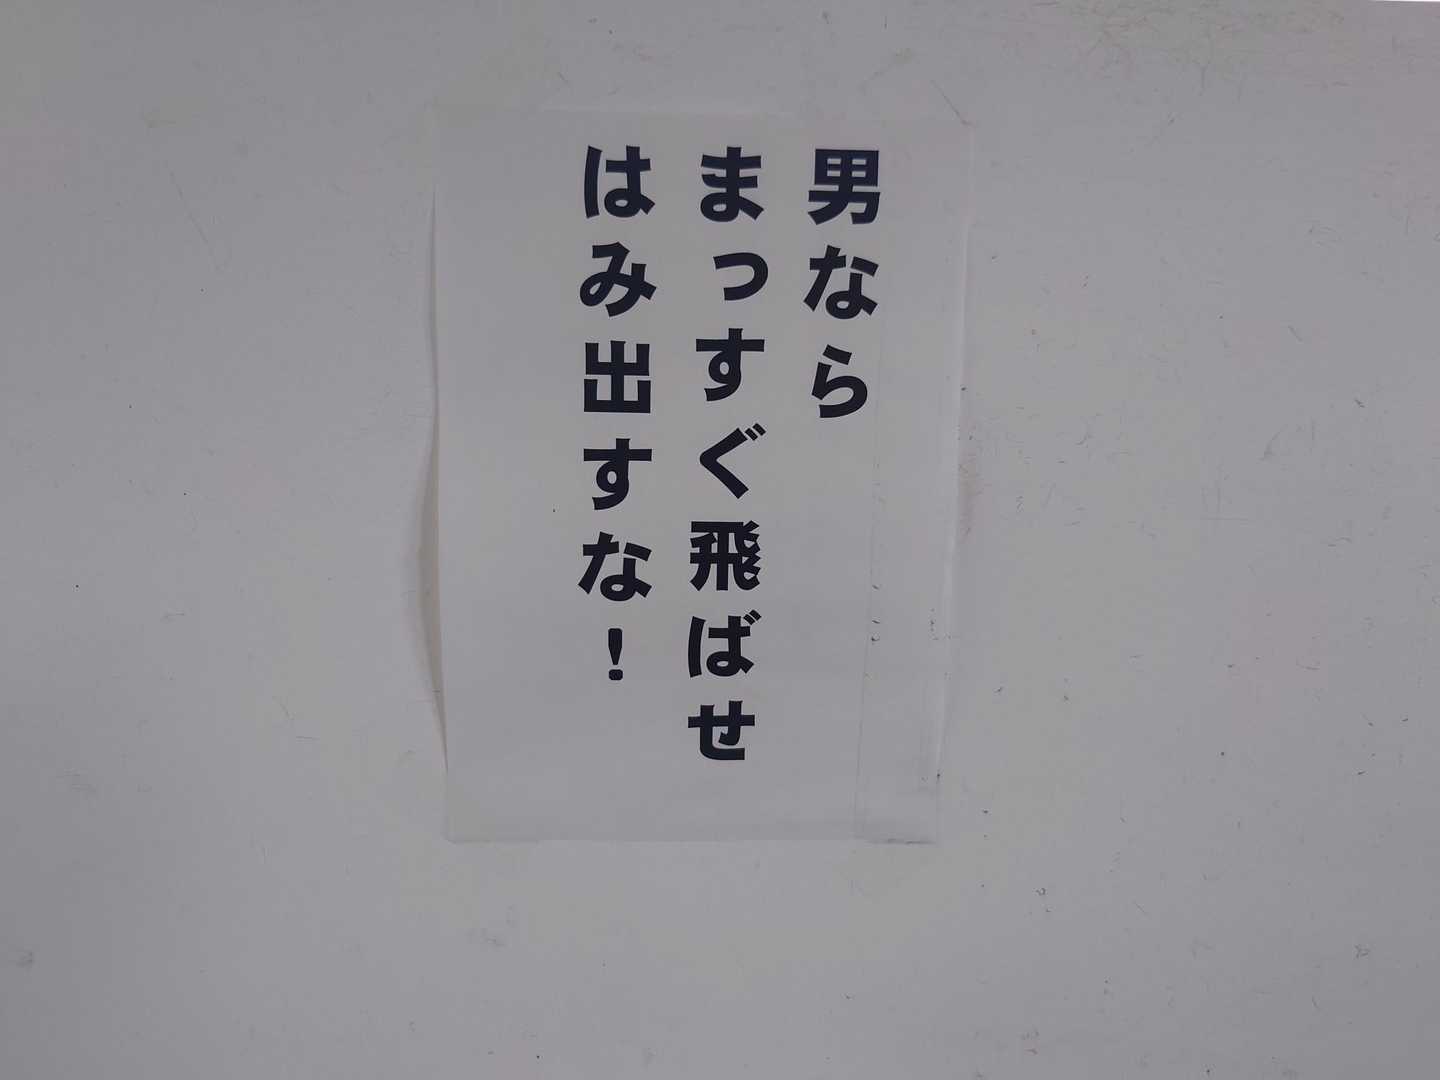 男なら
まっすぐ飛ばせ
はみ出すな！